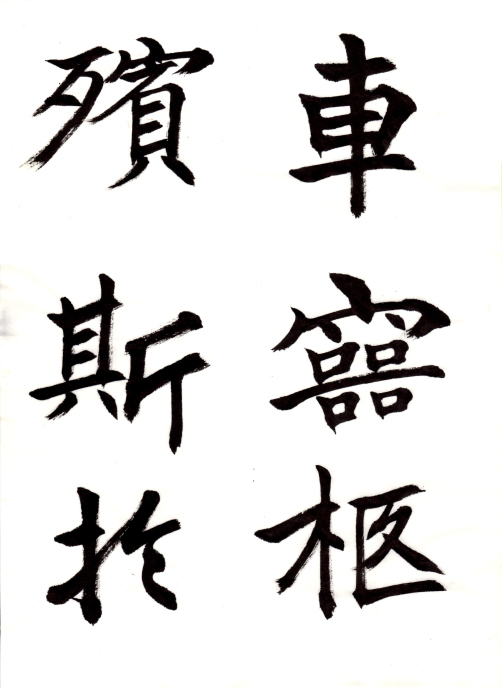 車柩
殯斯於